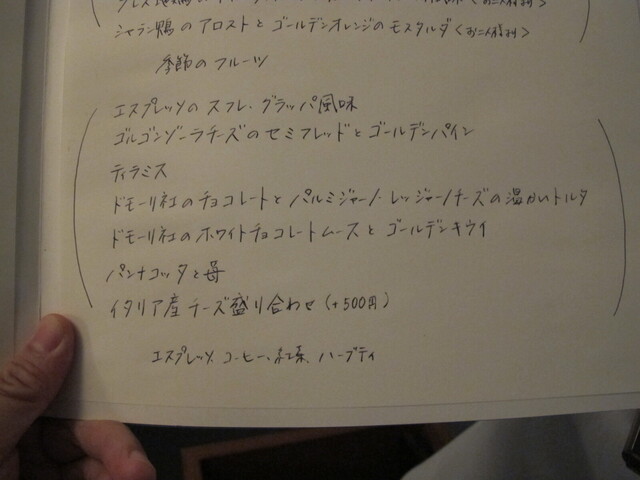 シャラン鴨のアロストとゴールデンオレンジのモスタルダ<お二人様>
季節のフルーツ
エスプレッソのスフレ、グラッパ風味
ゴルゴンゾーラチーズのセミフレッドとゴールデンパイン
ティラミス
ドモーリ社のチョコレートとパルミジャーノ・レッジャーノチーズの温かいトルタ
ドモーリ社のホワイトチョコレートムースとゴールデンキウイ
パンナコッタと苺
イタリア産チーズ盛り合わせ(+500円)
エスプレッソ、コーヒー、紅茶、ハーブティ